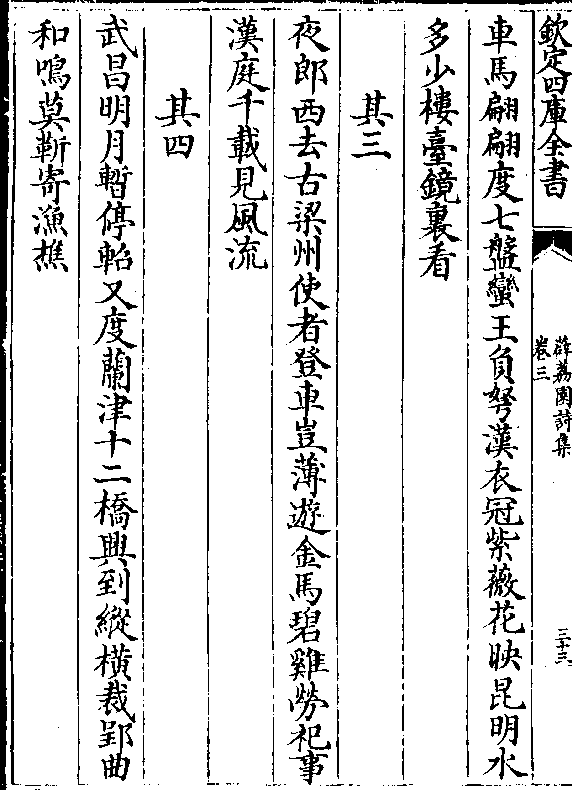 欽定四庫全書
薜荔園詩集
卷三
三十三
車馬翩翩度七盤蠻王負弩漢衣冠紫薇花映昆明水
多少樓臺鏡裏看
其三
夜郎西去古梁州使者登車豈薄遊金馬碧雞勞祀事
漢庭千載見風流
其四
武昌明月暫停軺又度蘭津十二橋興到縱橫裁郢曲
和鳴莫靳寄漁樵